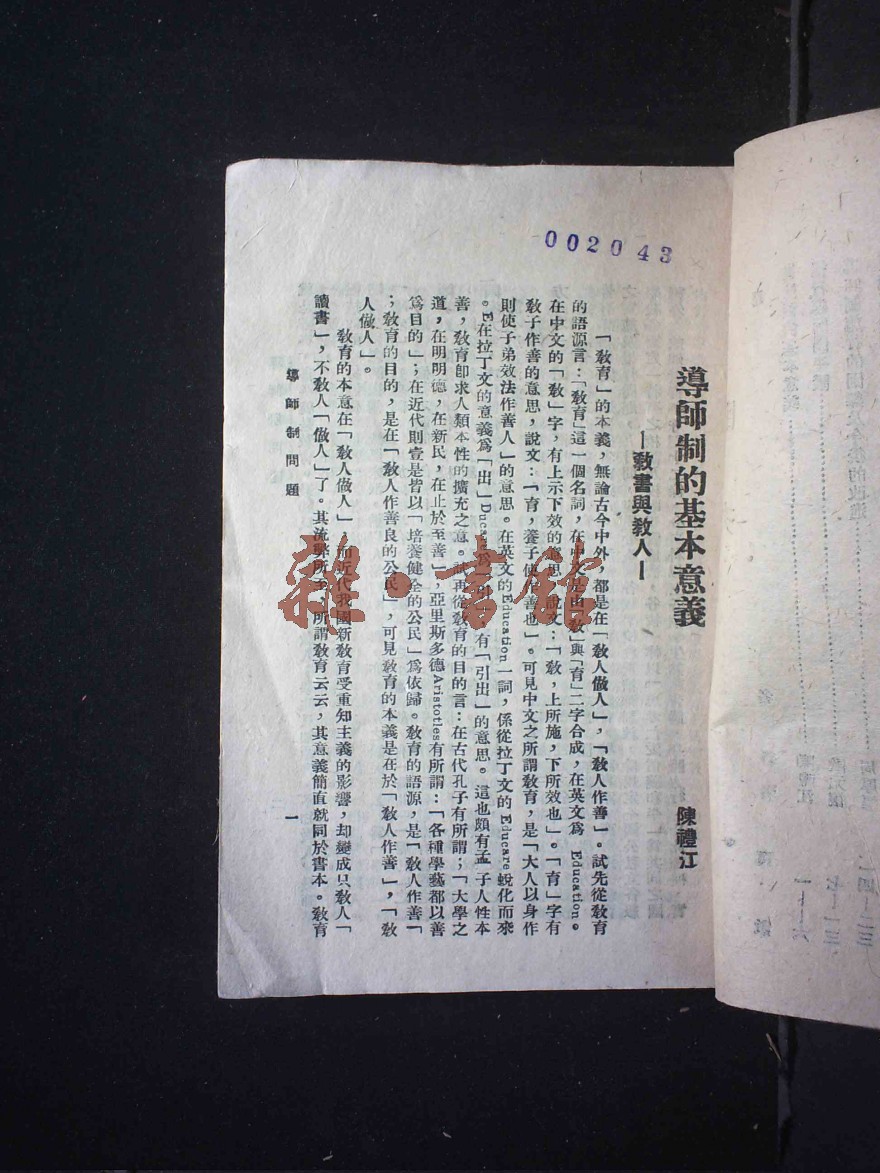 002043
導師制的基本意義
—敎書與敎人—
陳禮江
「敎育」的本義，無論古今中外，都是在「敎人做人」，「敎人作善」。試先從敎育
的語源言：「敎育」這一個名詞，在中文是由「敎」與「育」二字合成，在英文爲 Education。
在中文的「敎」字，有上示下效的意思，說文：「敎，上所施，下所效也」。「育」字有
敎子作善的意思，說文：「育，養子使作善也」。可見中文之所謂敎育，是「大人以身作
則使子弟效法作善人」的意思。在英文的Education一詞，係從拉丁文的 Educare 蛻化而來
。E在拉丁文的意義爲「出」Ducare爲「引」，有「引出」的意思。這也頗有孟子人性本
善，敎育卽求人類本性的擴充之意。試再從敎育的目的言：在古代孔子有所謂；「大學之
道，在明明德，在新民，在止於至善」，亞里斯多德Aristotles有所謂：「各種學藝都以善
爲目的」；在近代則壹是皆以「培養健全的公民」爲依歸。敎育的語源，是「敎人作善「
；敎育的目的，是在「敎人作善良的公民」，可見敎育的本義是在於「敎人作善」，「敎
人做人」。
敎育的本意在「敎人做人」，而近代我國新敎育受重知主義的影響，却變成只敎人「
讀書」，不敎人「做人」了。其流弊所至，所謂敎育云云，其意義簡直就同於書本。敎育
導師制問題
一
雜·書館